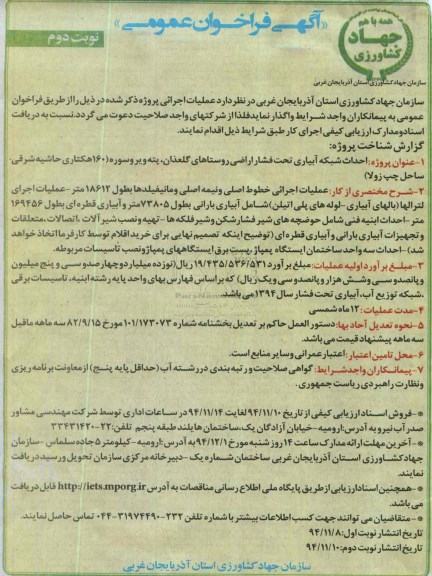 همه با هم
جهاد
کشاورزی
سازمان جهاد کشاورزی استان آذربایجان غربی
«آگهی فراخوان عمومی»
نوبت دوم
سازمان جهاد کشاورزی استان آذربایجان غربی در نظر دارد عملیات اجرائی پروژه ذکر شده در ذیل را از طریق فراخوان
عمومی به پیمانکاران واجد شرایط واگذار نماید فلذا از شرکتهای واجد صلاحیت دعوت می گردد. نسبت به دریافت
اسناد و مدارک ارزیابی کیفی اجرای کار طبق شرایط ذیل اقدام نمایند.
گزارش شناخت پروژه:
۱-عنوان پروژه: احداث شبکه آبیاری تحت فشار اراضی روستاهای گلعذان، پته ویر و سوره (۱۶۰ هکتاری حاشیه شرقی-
ساحل چپ زولا)
۲-شرح مختصری از کار: عملیات اجرائی خطوط اصلی و نیمه اصلی و مانیفیلدها بطول ۱۸۶۱۲ متر - عملیات اجرای
لترالها (بالهای آبیاری - لوله های پلی اتیلن) شامل آبیاری بارانی بطول ۷۳۸۰۵ متر و آبیاری قطره ای بطول ۱۶۹۴۵۶
متر - احداث ابنیه فنی شامل حوضچه های شیر فشارشکن و شیر فلکه ها - تهیه و نصب شیر آلات ، اتصالات ، متعلقات
و تجهیزات آبیاری بارانی و آبیاری قطره ای (توضیح اینکه تصمیم نهایی برای خرید اقلام توسط کارفرما اتخاذ خواهد
شد) - احداث سه واحد ساختمان ایستگاه پمپاژ ، پست برق ایستگاههای پمپاژ و نصب تاسیسات مربوطه.
۳-مبلغ برآورد اولیه عملیات: مبلغ برآورد ۱۹/۴۳۵/۵۳۶/۵۳۱ ریال (نوزده میلیارد و چهارصد و سی و پنج میلیون
و پانصد و سی و شش هزار و پانصد و سی و یک ریال) که بر اساس فهارس بهای واحد پایه رشته ابنیه، تاسیسات برقی
، شبکه توزیع آب، آبیاری تحت فشار سال ۱۳۹۴ می باشد.
۴-مدت عملیات: ۱۲ ماه شمسی
۵-نحوه تعدیل آحاد بها: دستور العمل حاکم بر تعدیل بخشنامه شماره ۱۰۱/۱۷۳۰۷۳ مورخ ۸۲/۹/۱۵ سه ماهه ماقبل
سه ماهه پیشنهاد قیمت می باشد.
۶-محل تامین اعتبار: اعتبار عمرانی و سایر منابع است.
۷-پیمانکاران واجد شرایط: گواهی صلاحیت و رتبه بندی در رشته آب (حداقل پایه پنج) از معاونت برنامه ریزی
ونظارت راهبردی ریاست جمهوری.
*-فروش اسناد ارزیابی کیفی از تاریخ ۹۴/۱۱/۱۰ لغایت ۹۴/۱۱/۱۴ در ساعات اداری توسط شرکت مهندسی مشاور
صدر آب نیرو به آدرس: ارومیه - خیابان آزادگان یک، ساختمان هایلند طبقه پنجم تلفن: ۲۲-۳۳۴۳۱۴۲۰
*-آخرین مهلت ارائه مدارک ساعت ۱۴ روز شنبه مورخ ۹۴/۱۲/۱ به آدرس: ارومیه - کیلومتر ۵ جاده سلماس - سازمان
جهاد کشاورزی استان آذربایجان غربی ساختمان شماره یک - دبیرخانه مرکزی سازمان تحویل و رسید دریافت
نمایند.
*-همچنین اسناد ارزیابی از طریق پایگاه ملی اطلاع رسانی مناقصات به آدرس http://iets.mporg.ir قابل دریافت
می باشد.
*-متقاضیان می توانند جهت کسب اطلاعات بیشتر با شماره تلفن ۲۳۲-۳۱۹۷۴۴۹۰-۰۴۴ تماس حاصل نمایند.
تاریخ انتشار نوبت اول: ۹۴/۱۱/۸
تاریخ انتشار نوبت دوم: ۹۴/۱۱/۱۰
سازمان جهاد کشاورزی استان آذربایجان غربی